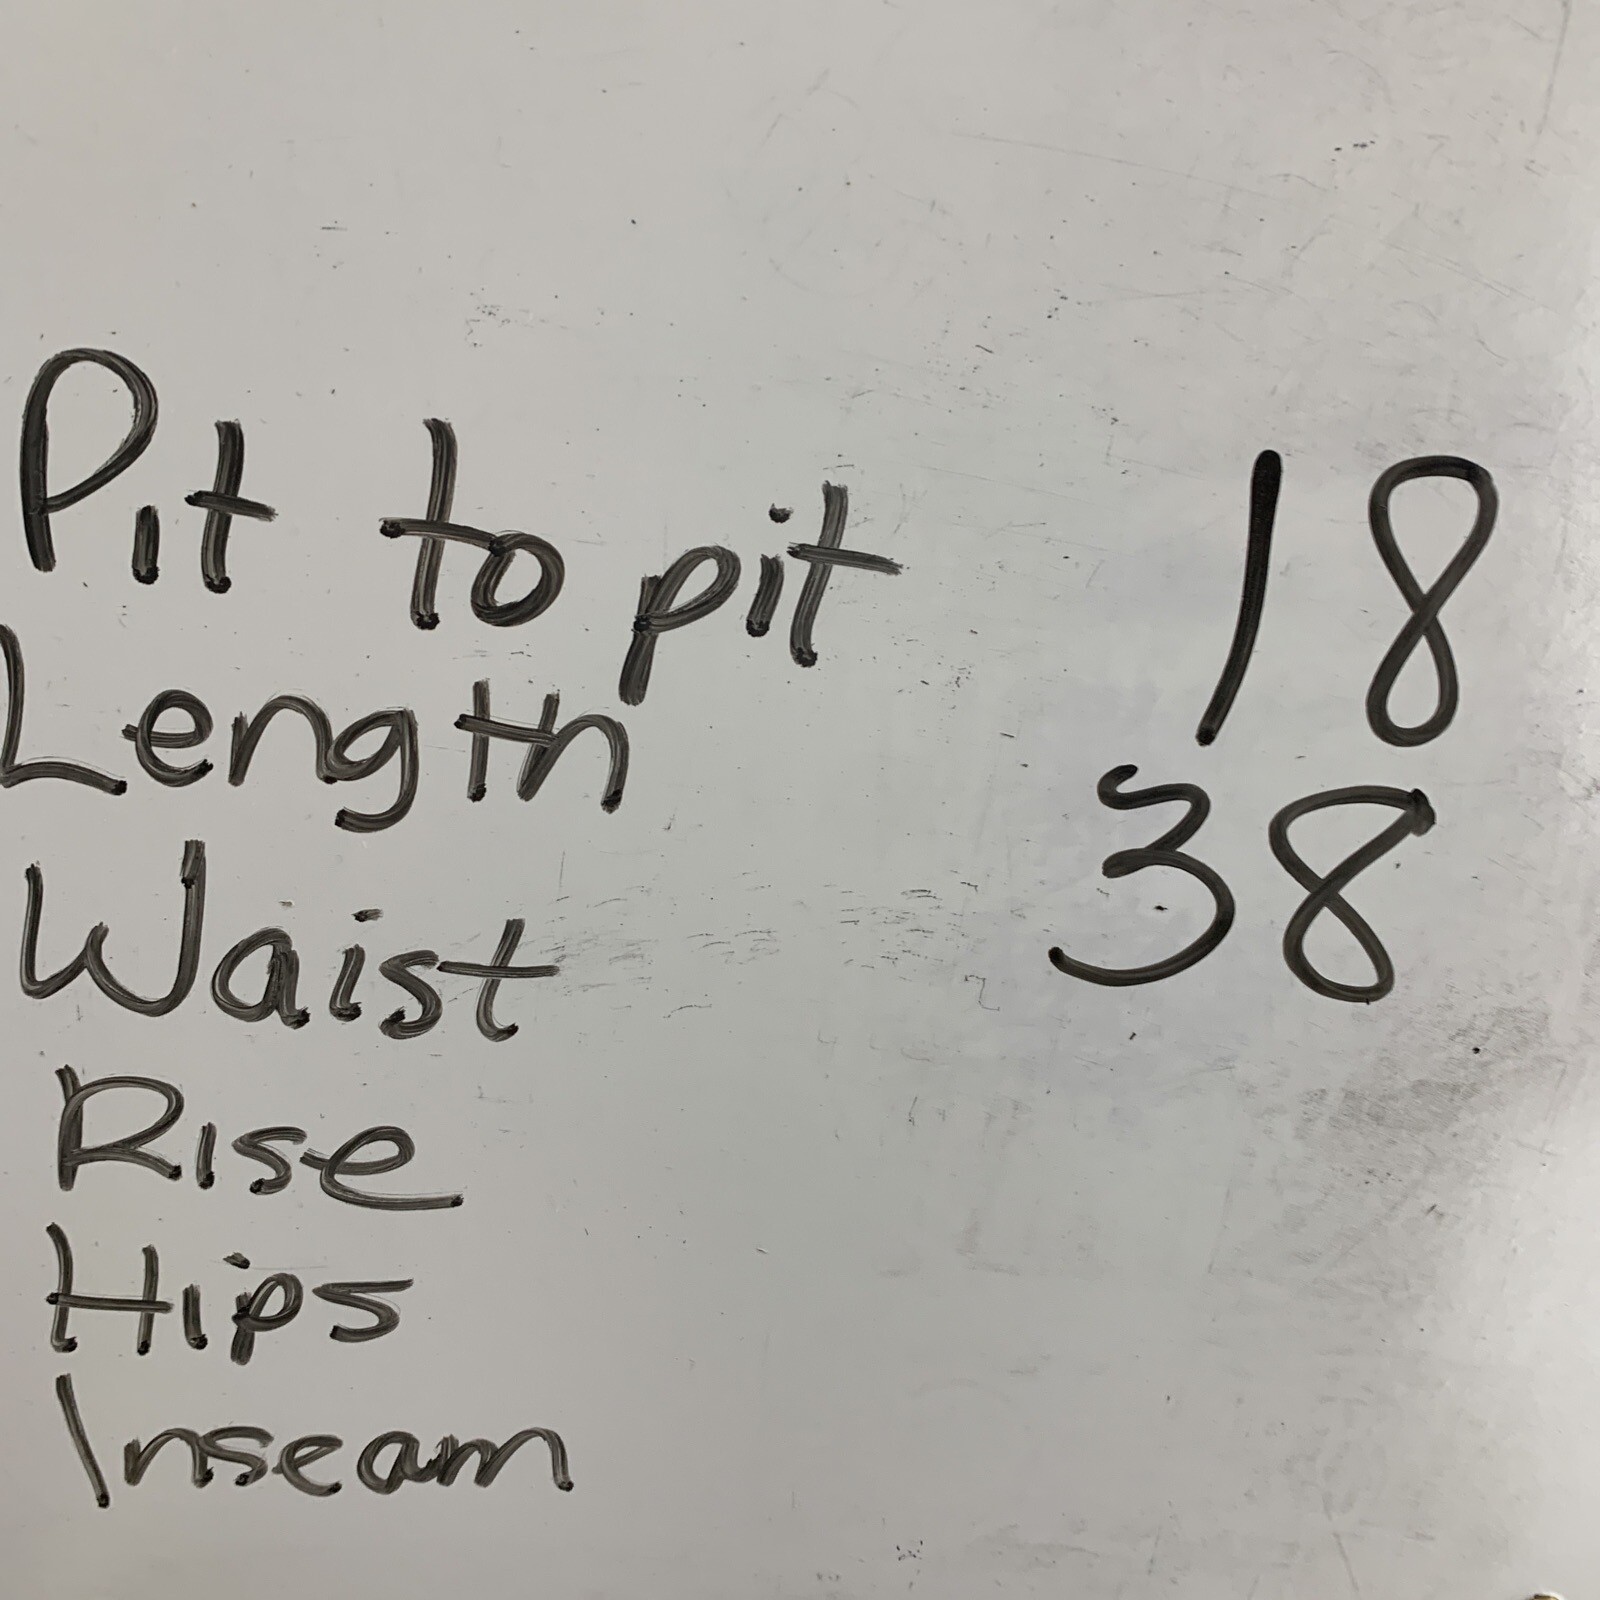 Pit to pit 18
Length 38
Waist
Rise
Hips
Inseam